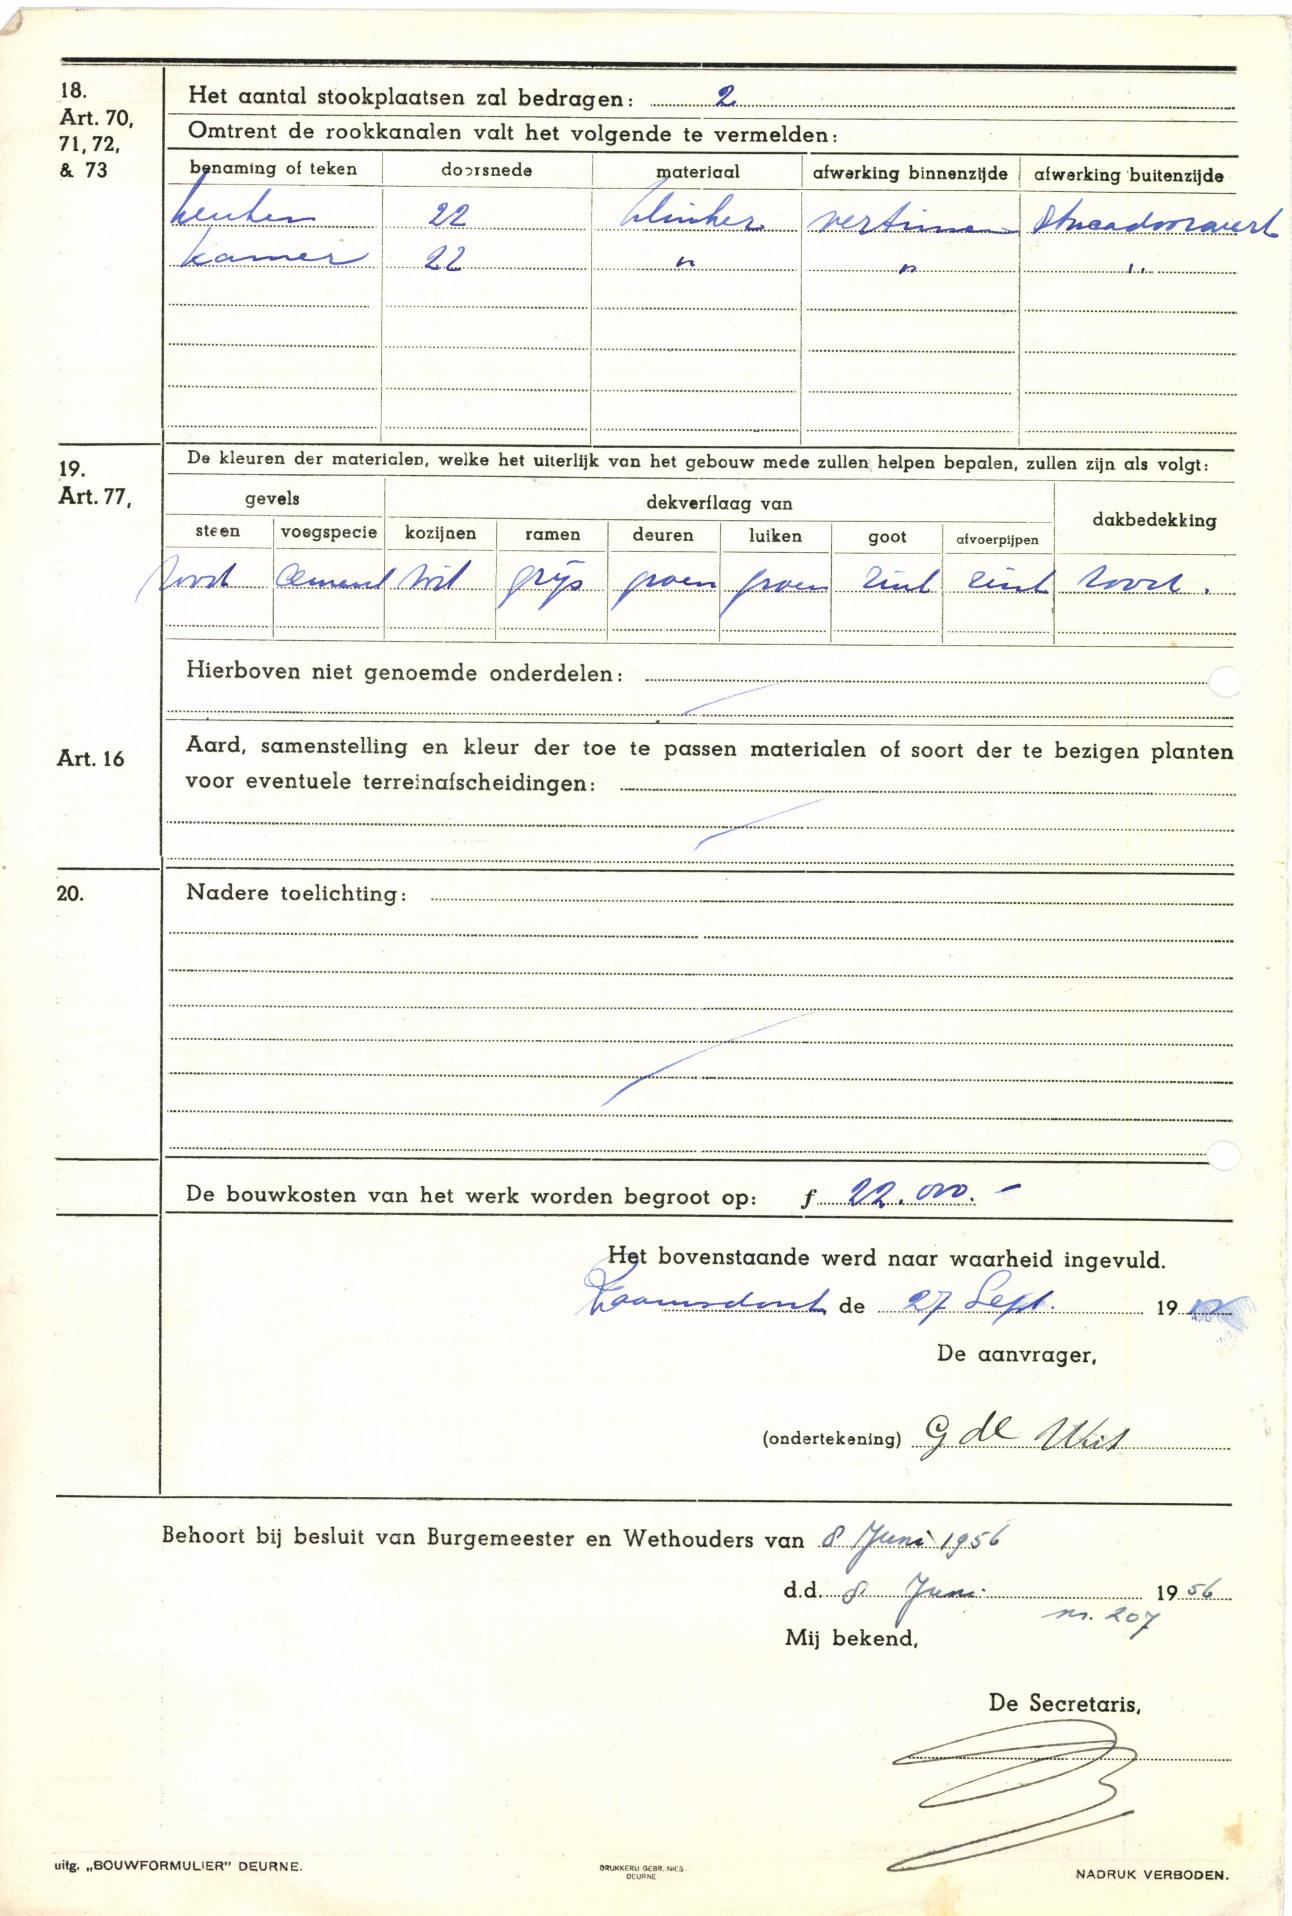 18.
Art. 70,
71, 72,
& 73
Het aantal stookplaatsen zal bedragen: 2
Omtrent de rookkanalen valt het volgende te vermelden:
benaming of teken doorsnede materiaal afwerking binnenzijde afwerking buitenzijde
keuken 22 klinker vertinnen stucadoorswerk
kamer 22 " " "
19.
Art. 77,
De kleuren der materialen, welke het uiterlijk van het gebouw mede zullen helpen bepalen, zullen zijn als volgt:
gevels dekverflaag van dakbedekking
steen voegspecie kozijnen ramen deuren luiken goot afvoerpijpen
rood cement wit grijs groen groen zink zink rood.
Hierboven niet genoemde onderdelen:
Art. 16
Aard, samenstelling en kleur der toe te passen materialen of soort der te bezigen planten
voor eventuele terreinafscheidingen:
20.
Nadere toelichting:
De bouwkosten van het werk worden begroot op: f 22.000.-
Het bovenstaande werd naar waarheid ingevuld.
Raamsdonk de 27 Sept. 19
De aanvrager,
(ondertekening) G de Wit
Behoort bij besluit van Burgemeester en Wethouders van 8 Juni 1956
d.d. 8 Juni 1956
nr. 207
Mij bekend,
De Secretaris,
uitg. „BOUWFORMULIER" DEURNE.
DRUKKERIJ GEBR. NIES
DEURNE
NADRUK VERBODEN.